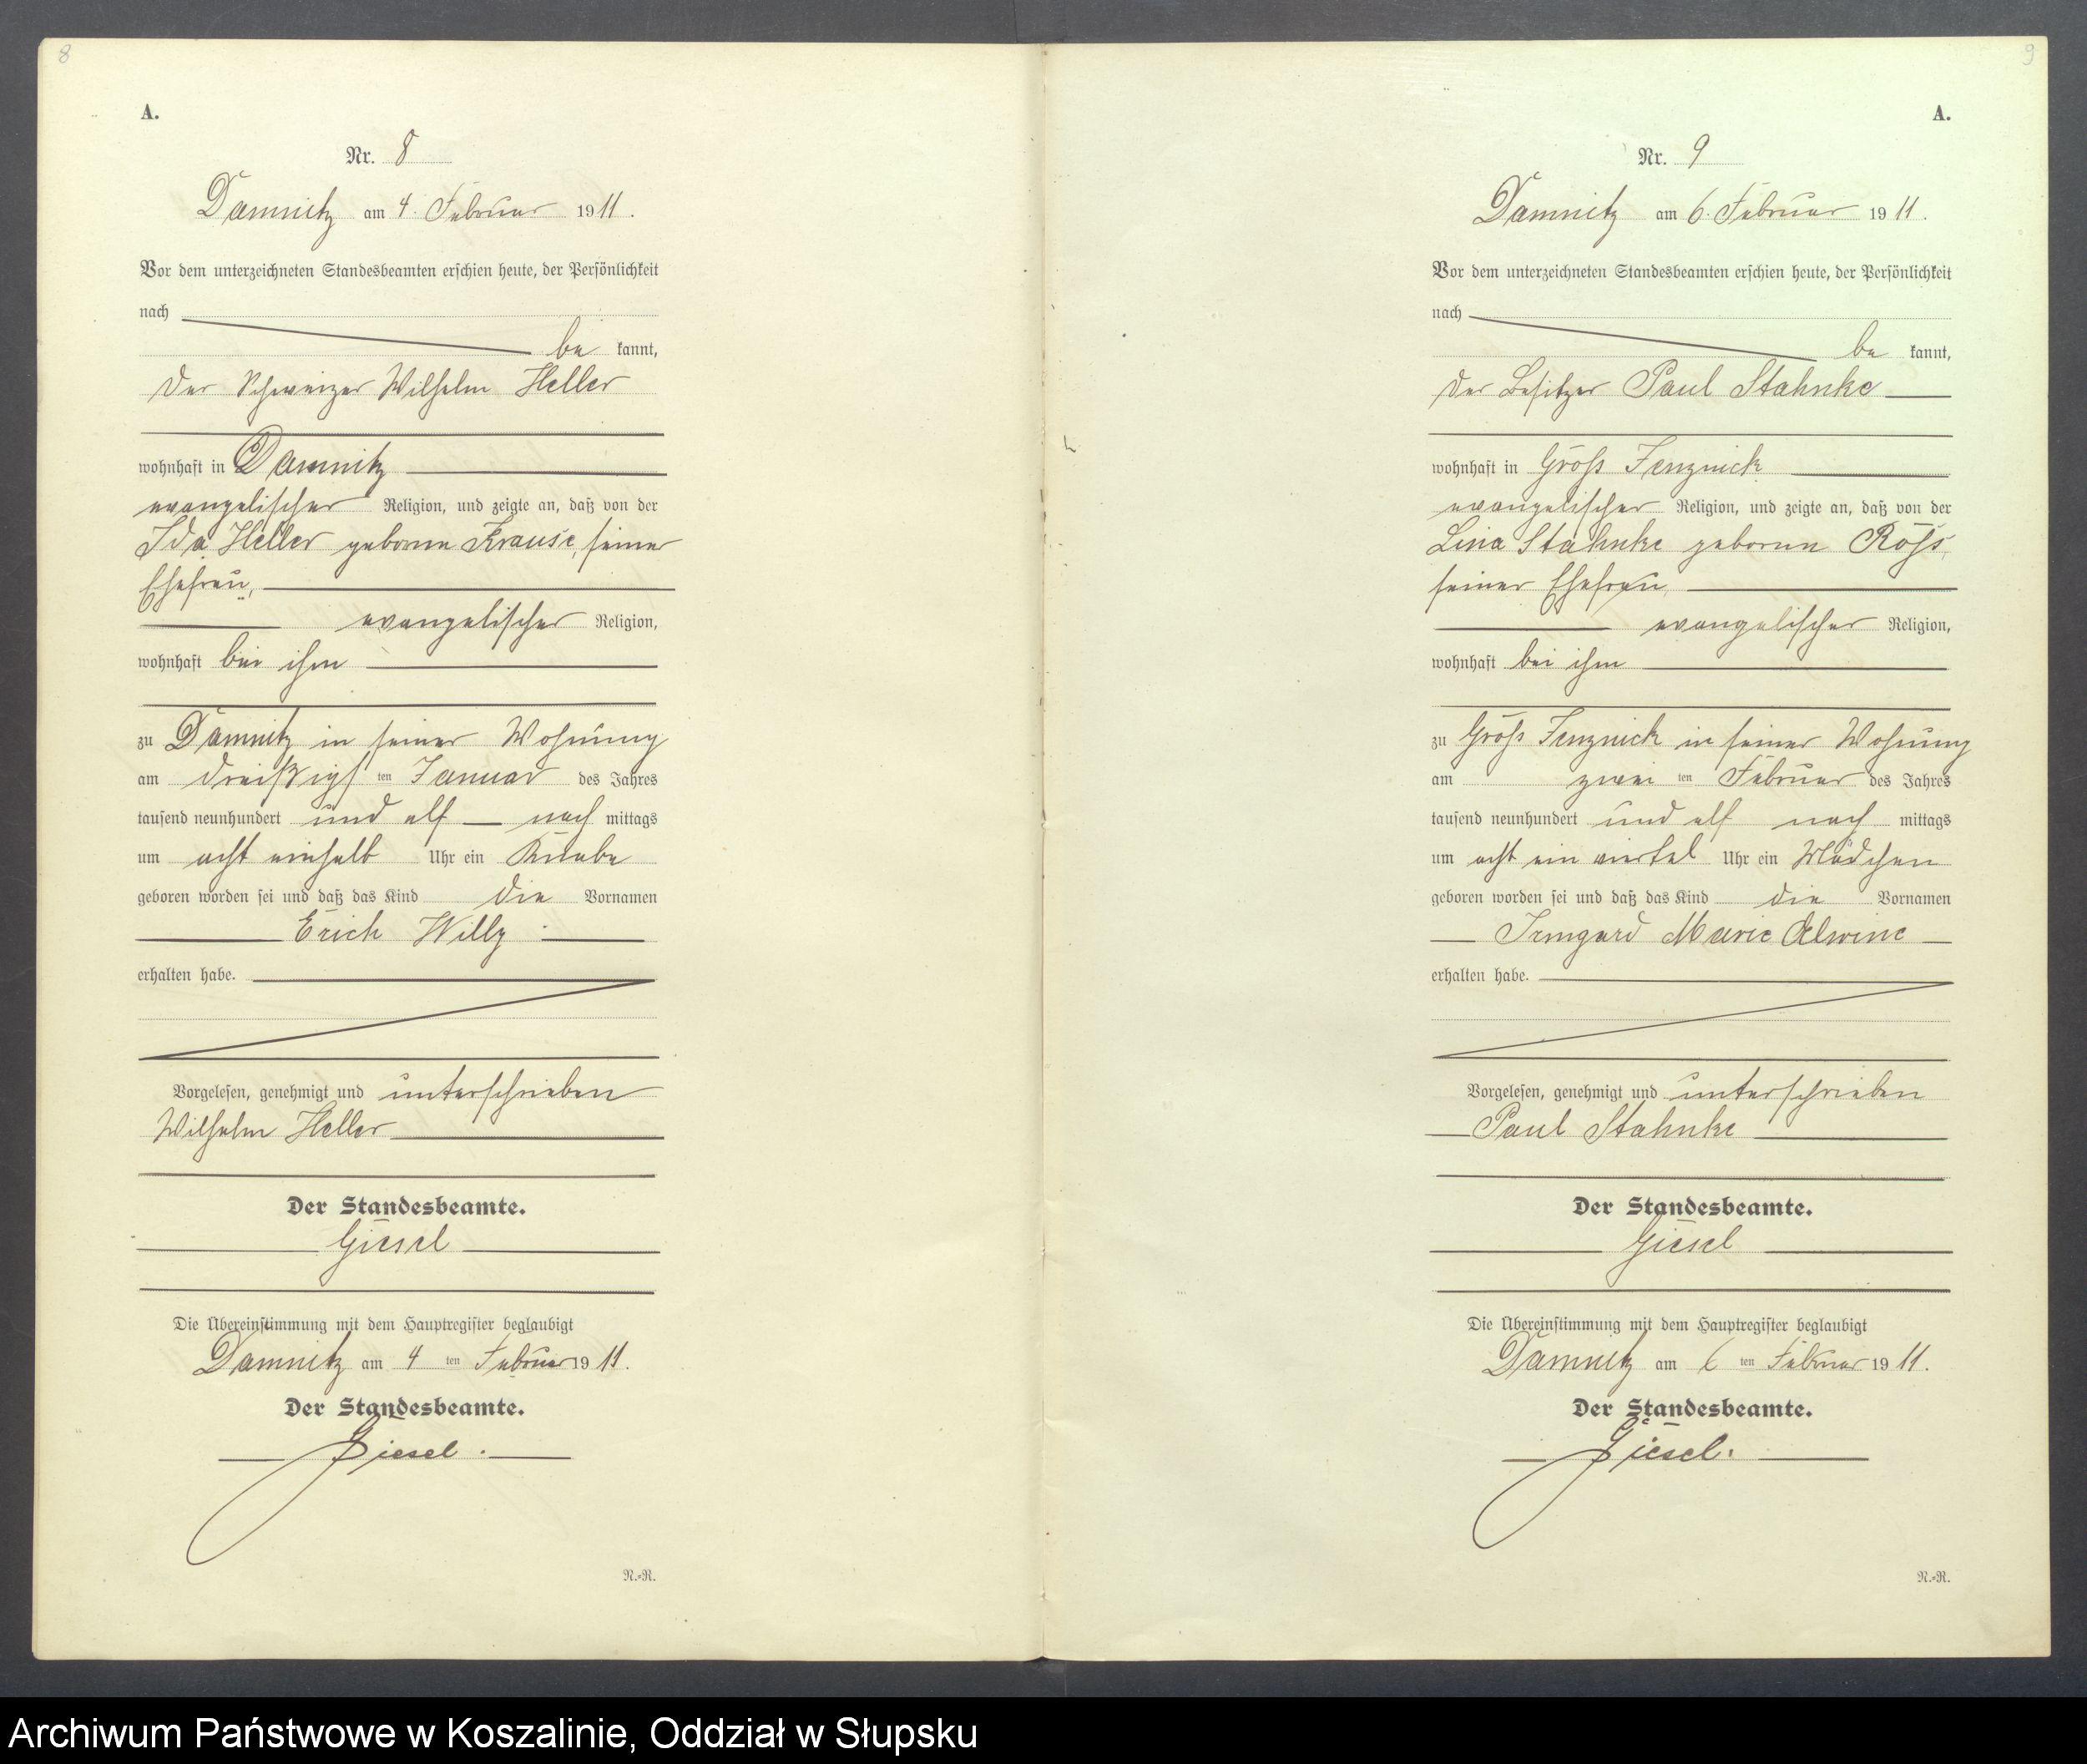 8
A.
Nr. 8
Damnitz am 4. Februar 1911.
Vor dem unterzeichneten Standesbeamten erschien heute, der Persönlichkeit
nach
be kannt,
der Schweizer Wilhelm Heller
wohnhaft in Damnitz
evangelischer Religion, und zeigte an, daß von der
Ida Heller geborne Krause, seiner
Ehefrau,
evangelischer Religion,
wohnhaft bei ihm
zu Damnitz in seiner Wohnung
am dreißigsten Januar des Jahres
tausend neunhundert und elf nach mittags
um acht einhalb Uhr ein Knabe
geboren worden sei und daß das Kind die Vornamen
Erich Willy
erhalten habe.
Vorgelesen, genehmigt und unterschrieben
Wilhelm Heller
Der Standesbeamte.
Giesel
Die Übereinstimmung mit dem Hauptregister beglaubigt
Damnitz am 4 ten Februar 1911.
Der Standesbeamte.
Giesel.
N.=R.
9
A.
Nr. 9
Damnitz am 6. Februar 1911.
Vor dem unterzeichneten Standesbeamten erschien heute, der Persönlichkeit
nach
be kannt,
der Besitzer Paul Stahnke
wohnhaft in Groß Jenznick
evangelischer Religion, und zeigte an, daß von der
Lina Stahnke geborne Röß,
seiner Ehefrau,
evangelischer Religion,
wohnhaft bei ihm
zu Groß Jenznick in seiner Wohnung
am zwei ten Februar des Jahres
tausend neunhundert und elf nach mittags
um acht ein viertel Uhr ein Mädchen
geboren worden sei und daß das Kind die Vornamen
Irmgard Marie Alwine
erhalten habe.
Vorgelesen, genehmigt und unterschrieben
Paul Stahnke
Der Standesbeamte.
Giesel
Die Übereinstimmung mit dem Hauptregister beglaubigt
Damnitz am 6 ten Februar 1911.
Der Standesbeamte.
Giesel.
N.=R.
Archiwum Państwowe w Koszalinie, Oddział w Słupsku